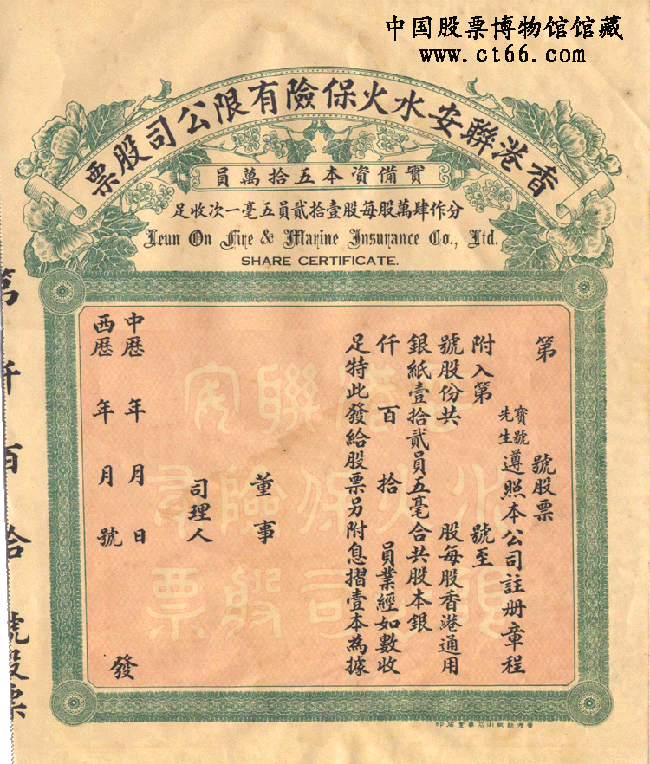 中国股票博物馆馆藏
www.ct66.com
香港聯安水火保險有限公司股票
實備資本五拾萬員
分作肆萬股每股壹拾貳員五毫一次收足
Leun On Fire & Marine Insurance Co., Ltd.
SHARE CERTIFICATE.
第 號股票
寶號
先生 遵照本公司註册章程
附入第 號至
號股份共 股每股香港通用
銀紙壹拾貳員五毫合共股本銀
仟 百 拾 員業經如數收
足特此發給股票另附息摺壹本為據
董事
司理人
中歷 年 月 日
西歷 年 月 號 發
第 仟 百 拾 號股票